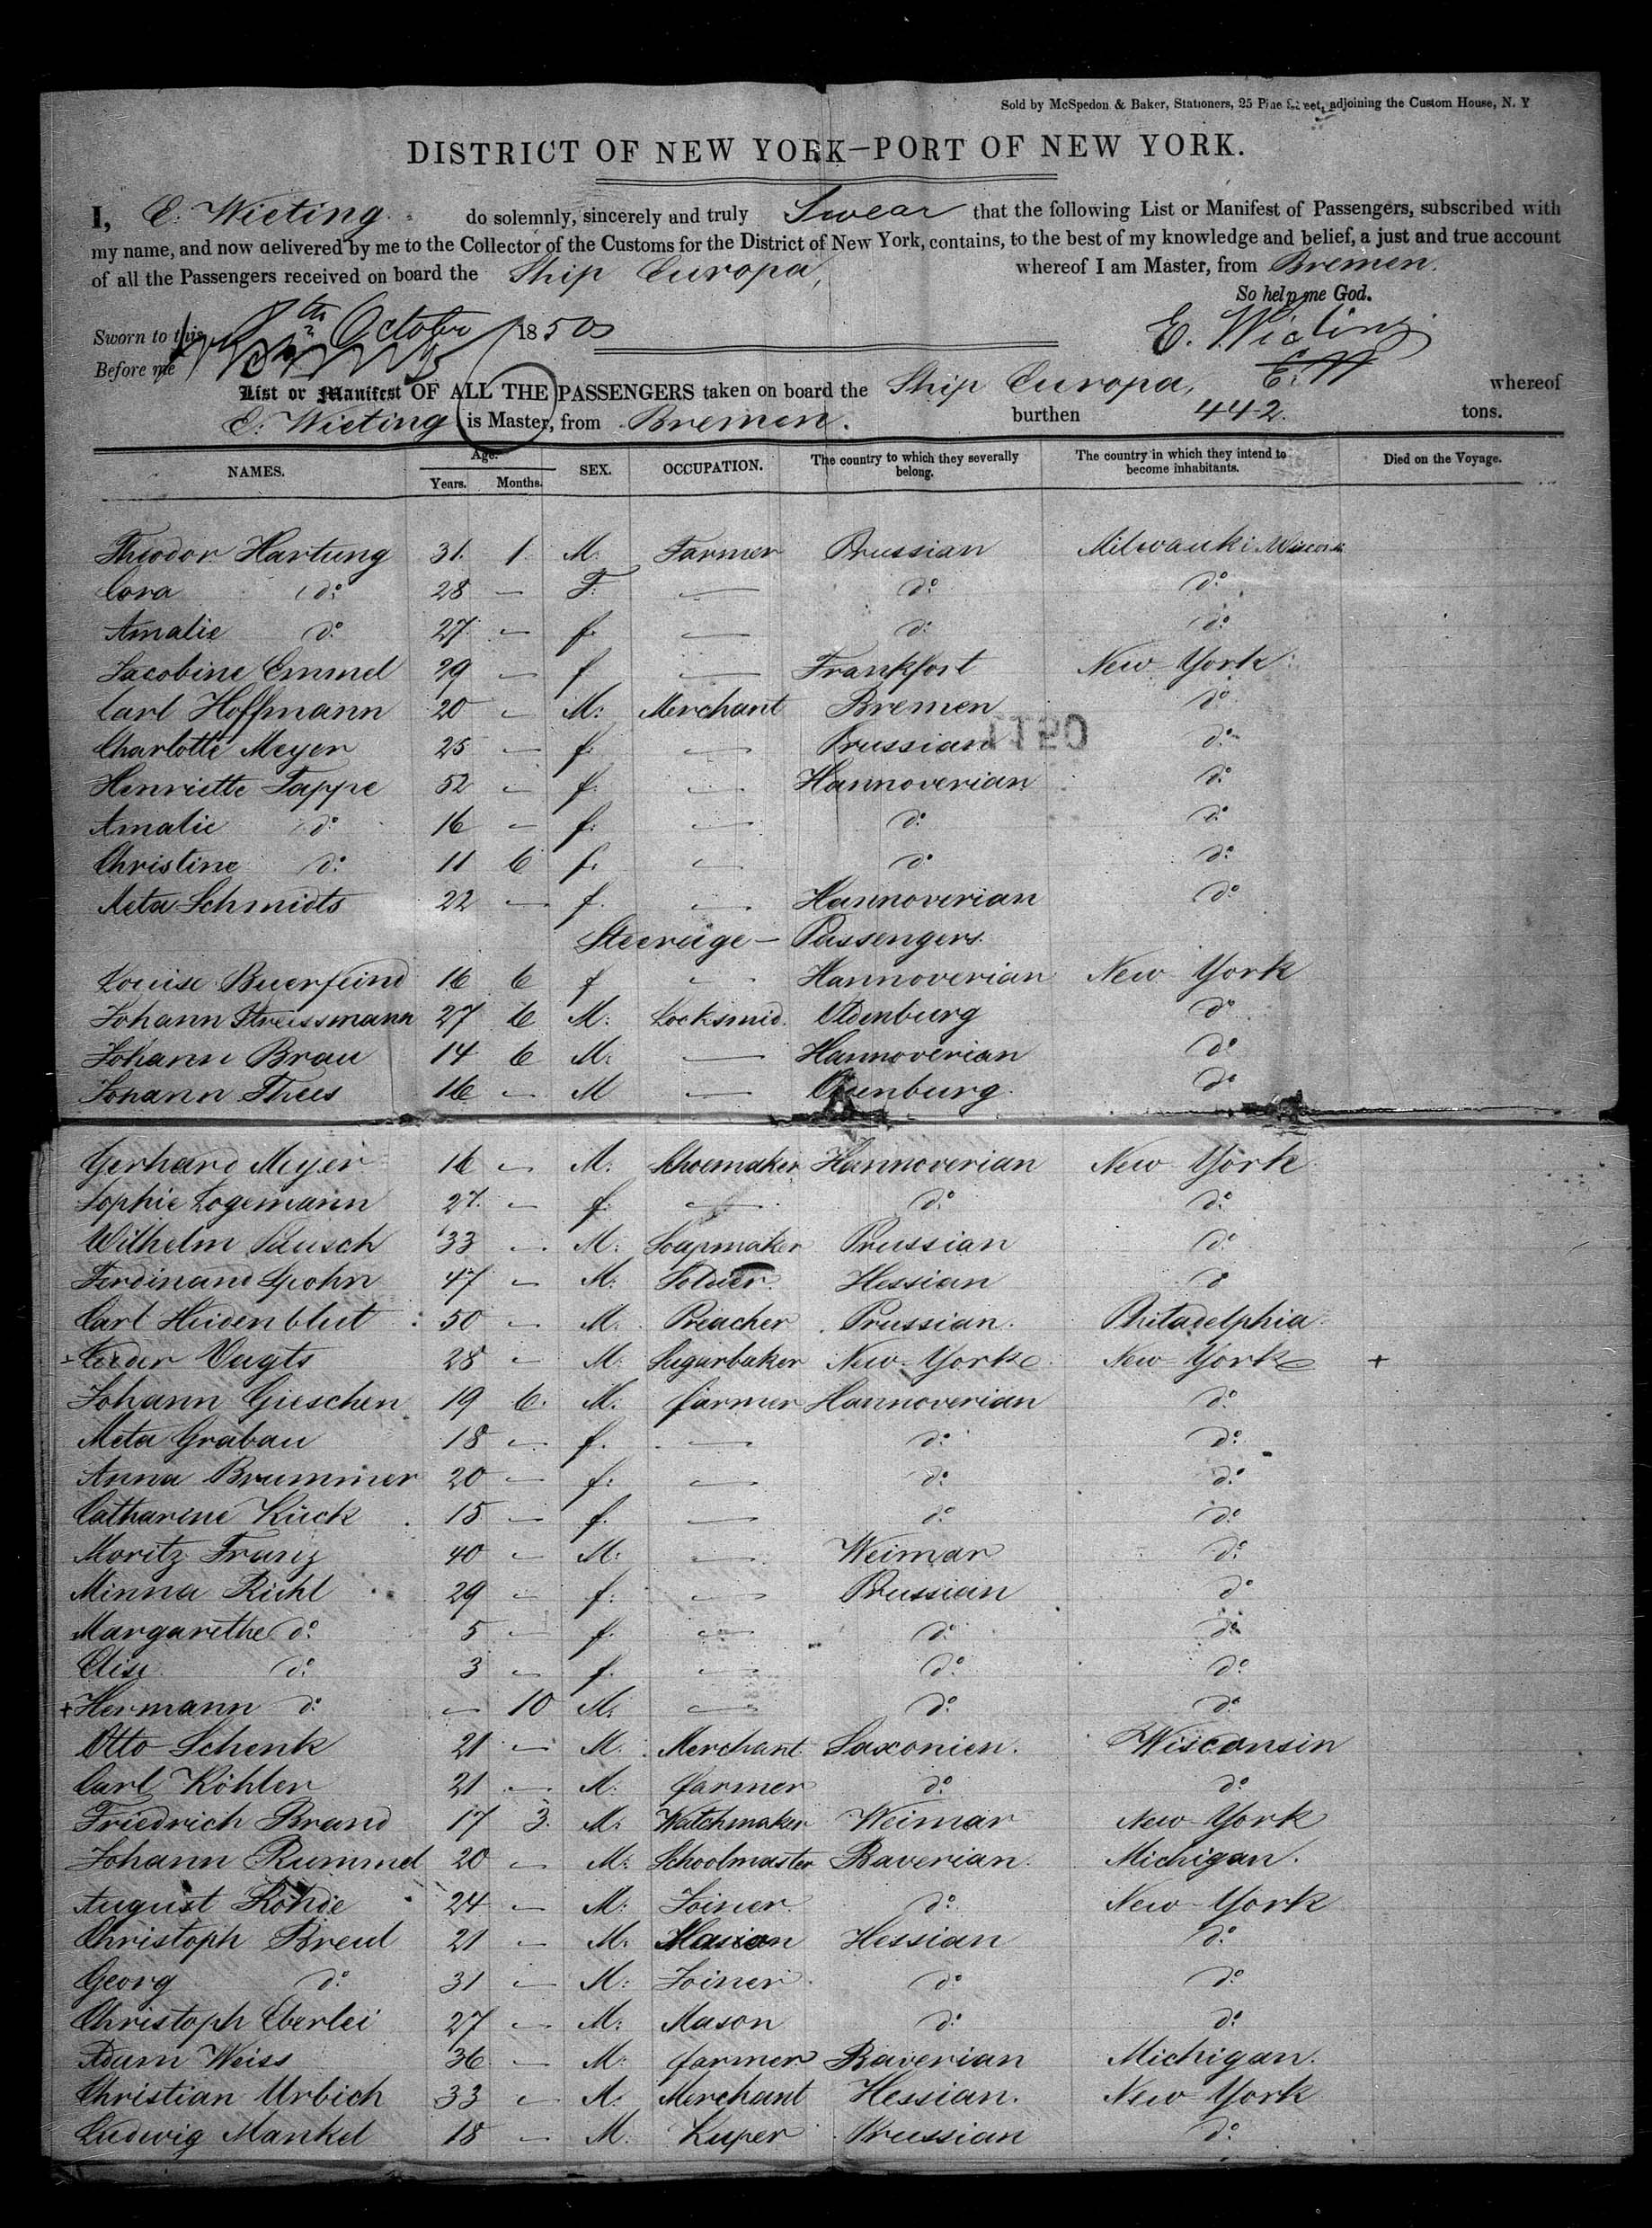 Sold by McSpedon & Baker, Stationers, 25 Pine Street, adjoining the Custom House, N. Y
DISTRICT OF NEW YORK—PORT OF NEW YORK.
I, E. Wieting do solemnly, sincerely and truly Swear that the following List or Manifest of Passengers, subscribed with
my name, and now delivered by me to the Collector of the Customs for the District of New York, contains, to the best of my knowledge and belief, a just and true account
of all the Passengers received on board the Ship Europa, whereof I am Master, from Bremen.
So help me God.
Sworn to this 8th October 1850 E. Wieting
Before me
List or Manifest OF ALL THE PASSENGERS taken on board the Ship Europa, whereof
E. Wieting is Master, from Bremen. burthen 442 tons.
NAMES. Age. Years. Months. SEX. OCCUPATION. The country to which they severally belong. The country in which they intend to become inhabitants. Died on the Voyage.
Theodor Hartung 31. 1. M. Farmer Prussian Milwauki
Cora do. 28 — F. — do. do.
Amalie do. 27. — f. — do. do.
Jacobine Emmel 29 — f — Frankfort New York
Carl Hoffmann 20 — M: Merchant Bremen do.
Charlotte Meyer 25 — f. — Prussian do.
Henriette Tappe 52 — f. — Hannoverian do.
Amalie do. 16 — f. — do. do.
Christine do. 11 6 f. — do. do.
Meta Schmidts 22 — f. — Hannoverian do.
Steerage — Passengers.
Louise Buerfeind 16 6 f — Hannoverian New York
Johann Streissmann 27 6 M: Locksmid. Oldenburg do.
Johann Brau 14 6 M: — Hannoverian do.
Johann Thees 16 — M — Oldenburg. do.
Gerhard Meyer 16 — M. Shoemaker Hannoverian New York
Sophie Logemann 27. — f. — do. do.
Wilhelm 33 — M: Soapmaker Prussian do.
Ferdinand Spohn 47 — M. Soldier. Hessian do
Carl Heidenblut 50 — M. Preacher Prussian. Philadelphia
Lüder Vagts 28 — M. Sugarbaker New York New York +
Johann Gieschen 19 6. M. farmer Hannoverian do.
Meta Grabau 18 — f. — do. do.
Anna Brummer 20 — f. — do. do.
Catharine Kück 15 — f. — do. do.
Moritz Franz 40 — M: — Weimar do.
Minna Riehl 29 — f. — Prussian do
Margarethe do. 5 — f. — do. do.
Elise do. 3 — f. — do. do.
+Hermann do. — 10 M. — do. do.
Otto Schenk 21 — M. Merchant Saxonien. Wisconsin
Carl Köhler 21 — M. farmer do. do.
Friedrich Brand 17 3. M. Watchmaker Weimar New York
Johann Rummel 20 — M: Schoolmaster Baverian. Michigan.
August Rohde 24 — M: Joiner. do. New York
Christoph Breul 21 — M. Mason Hessian do.
Georg do. 31 — M: Joiner. do. do.
Christoph Eberlei 27 — M: Mason do. do.
Adam Weiss 36 — M. farmer Baverian Michigan.
Christian Urbich 33 — M. Merchant Hessian. New York
Ludwig Mankel 18 — M. Kuper Prussian do.